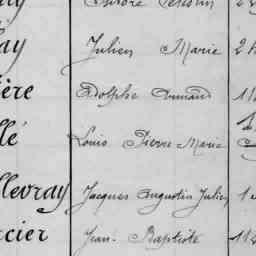 ay Julien Marie 2
ère Adolphe Armand 1
lé Louis Pierre Marie
llevray Jacques Augustin Julien 1
cier Jean Baptiste 18